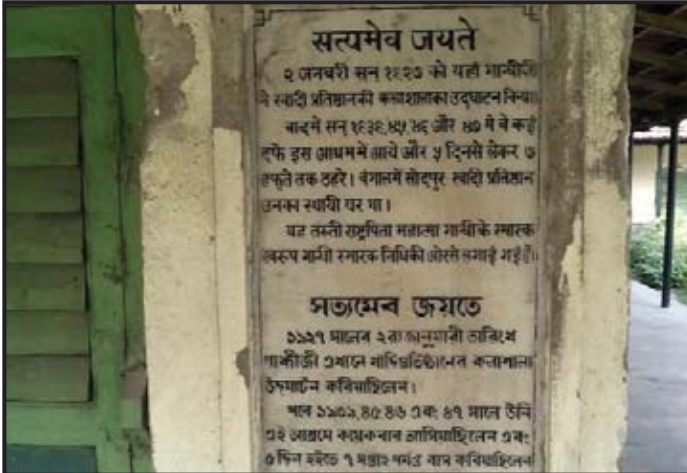 सत्यमेव जयते
२ जनवरी सन १९२७ को यहाँ गान्धीजी
ने खादी प्रतिष्ठानकी कलाशालाका उद्घाटन किया।
बादमें सन् १९३९,४५,४६ और ४७ मे वे कई
दफे इस आश्रममें आये और ५ दिनसे लेकर ७
हफ्ते तक ठहरे। बंगालमें सोदपुर खादी प्रतिष्ठान
उनका स्थायी घर था।
यह तख्ती राष्ट्रपिता महात्मा गान्धीके स्मारक
स्वरूप गान्धी स्मारक निधिकी ओरसे लगाई गई है।
সত্যমেব জয়তে
১৯২৭ সালের ২রা জানুয়ারী তারিখে
গান্ধীজী এখানে খাদিপ্রতিষ্ঠানের কলাশালা
উদ্ঘাটন করিয়াছিলেন।
পরে ১৯৩৯, ৪৫ ৪৬ এবং ৪৭ সালে উনি
এই আশ্রমে কয়েকবার আসিয়াছিলেন এবং
৫ দিন হইতে ৭ সপ্তাহ পর্যন্ত বাস করিয়াছিলেন